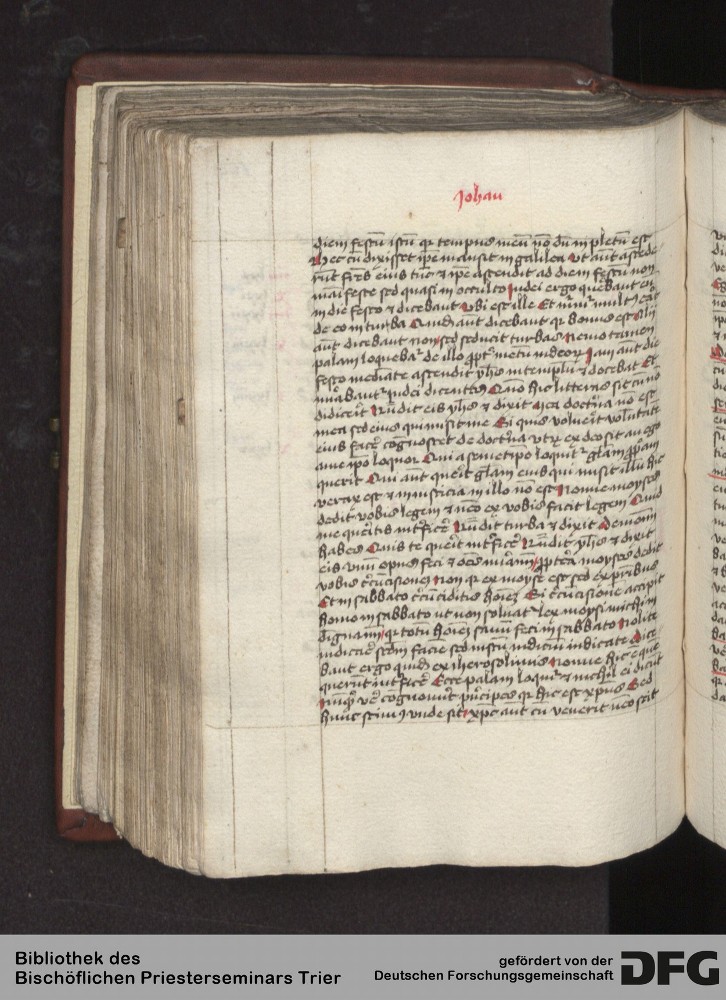 Johan
diem festū istū qr tempus meū nō dum īpletū est
Hec cū dixisset ipe mansit in galilea Vt aūt ascede
rūt frēs eius tūc et ipe ascendit ad diem festū non
māifeste sed quasi in occulto Judei ergo querebāt eū
in die festo et dicebāt Vbi est ille Et murmur multū erat
de eo in turba Quidā aūt dicebant qr bonus est Alii
aūt dicebant non sed seducit turbas Nemo tamen
palam loquebat de illo ppter metū iudeor Jam aūt die
festo mediante ascendit yhs in templū et docebat Et
mirabant iudei dicentes Quō hic litteras scit cū nō
didicerit Rūdit eis yhs et dixit Mea doctrīa nō est
mea sed eius qui misit me Si quis voluerit volūtatē
eius facere cognoscet de doctrīa vtrū ex deo sit an ego
a me ipo loquor Qui a semetipo loquit glām ppriam
querit Qui aūt querit glam eius qui misit illū hic
verax est et iniusticia in illo nō est Nonne moyses
dedit vobis legem et nēo ex vobis facit legem Quid
me queritis intficere Rūdit turba et dixit Demoniū
habes Quis te querit intficere Rūdit yhs et dixit
eis vnū opus feci et oēs miramī ppterea moyses dedit
vobis circūcisionē non qr ex moyse est sed ex pribus
Et in sabbato circūciditis hoīem Si circūcisionē accipit
homo in sabbato ut non soluat lex moysi michi in
dignamī qr totū hoīem sanū feci in sabbato Nolite
iudicare scdm facie sed iustū iudiciū iudicate Dice
bant ergo quidā ex iherosolimis Nonne hic ē quē
querunt intficere Ecce palam loquit et nichil ei dicūt
Nūqd vere cognouerūt principes qr hic est xpus Sed
hunc scim9 vnde sit xpc aūt cū venerit nēo scit
Bibliothek des
Bischöflichen Priesterseminars Trier
gefördert von der
Deutschen Forschungsgemeinschaft
DFG